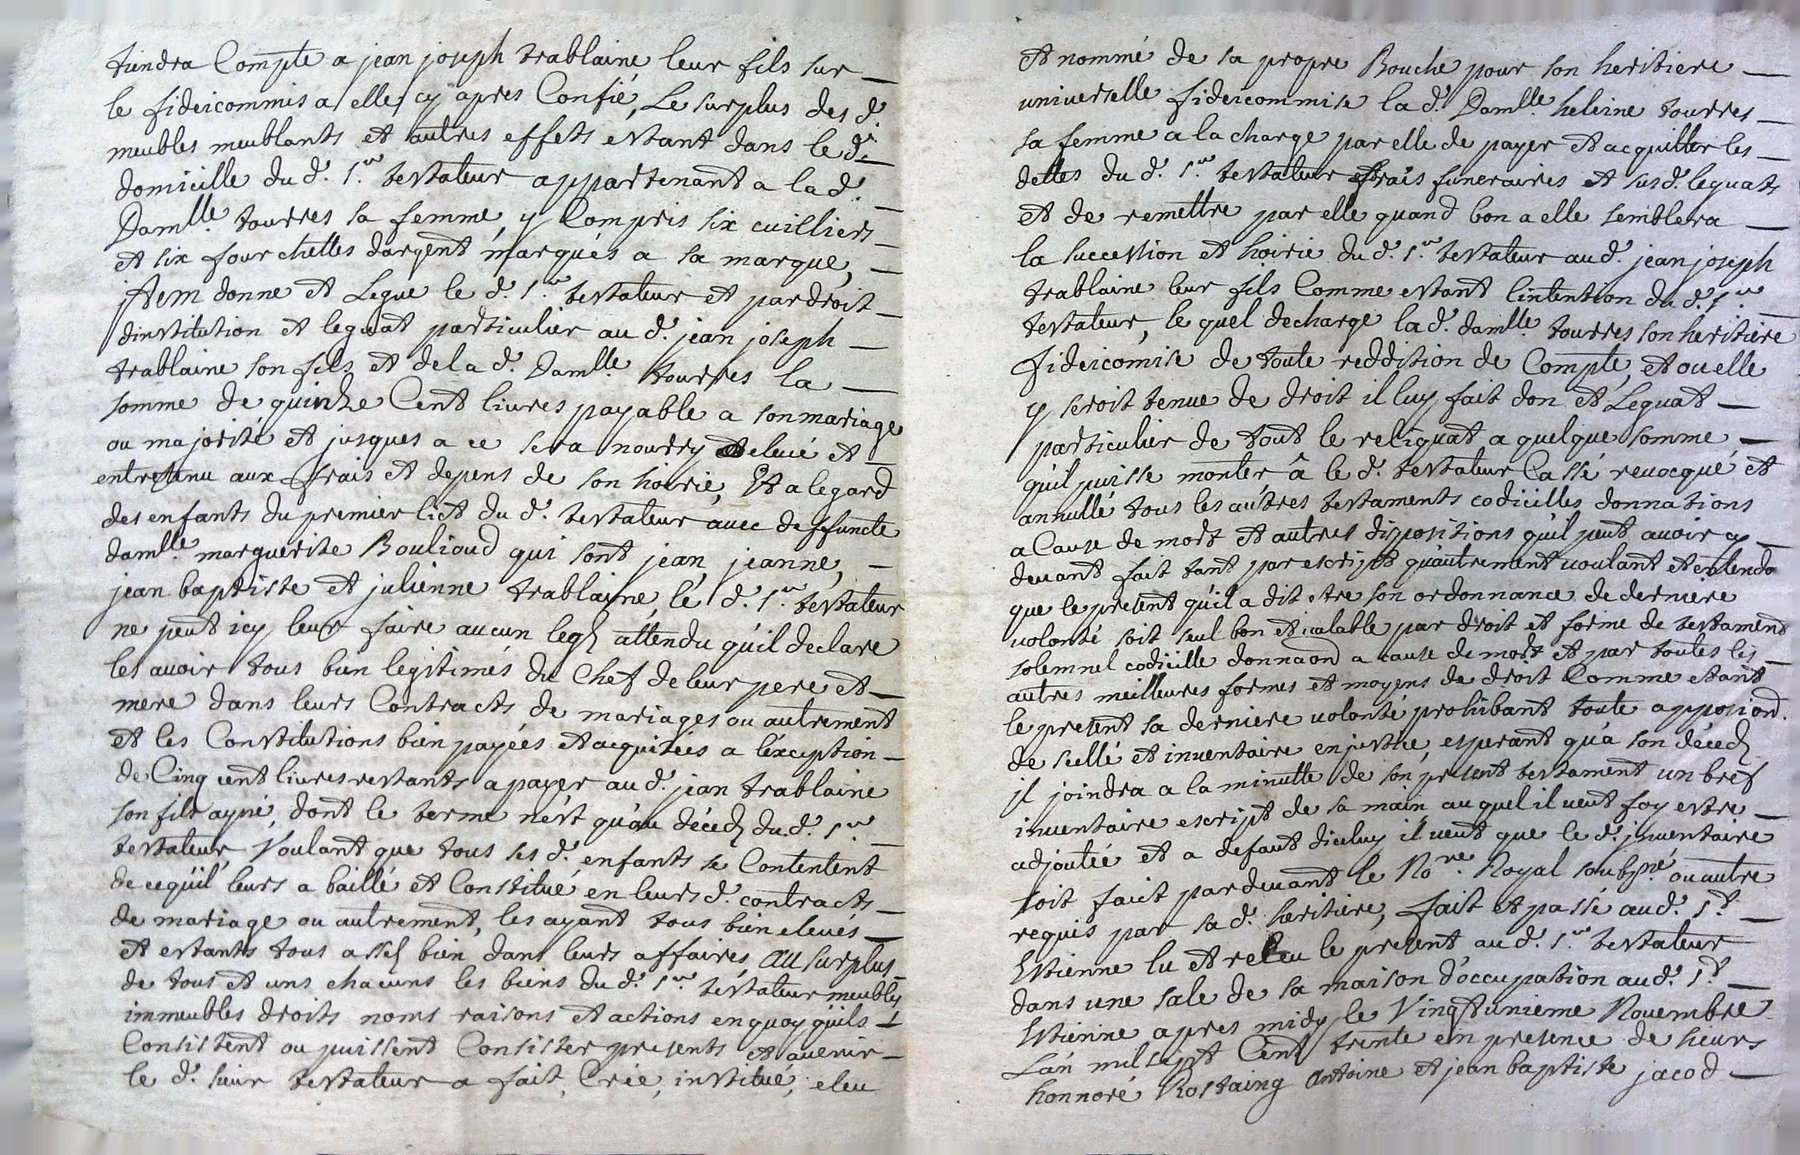 tiendra Compte a jean joseph trablaine leur fils sur
le fideicommis a elle cy apres Confié, Le surplus des d.
meubles meublants et autres effets estant dans le d.
domicille du d. Sr. testateur appartenant a la d.
Damlle. tourres sa femme, y Compris six cuilliers
et six fourchettes dargent marqués a sa marque,
jtem donne et Legue le d. Sr. testateur et par droit
dinstitution et leguat particulier au d. jean joseph
trablaine son fils et de la d. Damlle. tourres la
somme de quinze Cent livres payable a son mariage
ou majorité et jusques a ce sera nourry elevé et
entretenu aux frais et depens de son hoirie, Et a legard
des enfants du premier lict du d. testateur avec deffuncte
damlle marguerite Bouliaud qui sont jean, jeanne,
jean baptiste et julienne trablaine, le d. Sr. testateur
ne peut icy leur faire aucun legs attendu qu'il declare
les avoir tous bien legitimés du Chef de leur pere et
mere dans leurs Contracts de mariages ou autrement
et les Constitutions bien payées et acquitées a l'exception
de Cinq cent livres restants a payer au d. jean trablaine
son fils ayné, dont le terme n'est qu'au décès du d. Sr.
testateur, Voulant que tous ses d. enfants se Contentent
de ce qu'il leurs a baillé et Constitué en leurs d. contracts
de mariage ou autrement, les ayant tous bien elevés
et estants tous assés bien dans leurs affaires, au surplus
de tous et uns chacuns les biens du d. Sr. testateur meubles
immeubles droits noms raisons et actions en quoy qu'ils
Consistent ou puissent Consister presents et avenir
le d. sieur testateur a fait, Crée, institué, eleu
et nommé de sa propre Bouche pour son heritiere
universelle fideicommise la d. Damlle. heleine tourres
sa femme a la charge par elle de payer et acquitter les
dettes du d. Sr. testateur frais funeraires et susd. leguats
et de remettre par elle quand bon a elle semblera
la succession et hoirie du d. Sr. testateur au d. jean joseph
trablaine leur fils Comme estant l'intention du d. Sr.
testateur, le quel decharge la d. damlle. tourres son heritiere
fideicomise de toute reddition de Compte, et ou elle
y seroit tenue de droit il luy fait don et Leguat
particulier de tout le reliquat a quelque somme
qu'il puisse monter â le d. testateur Cassé revocqué et
annullé tous les autres testaments codicilles donnations
a Cause de mort et autres dispositions qu'il peut avoir cy
devant fait tant par escript qu'autrement voulant et entend
que le present qu'il a dit etre son ordonnance de derniere
volonté soit seul bon et valable par droit et forme de testament
solemnel codicille donnaon a cause de mort et par toutes les
autres meilleures formes et moyens de droit Comme etant
le present sa derniere volonté prohibant toute apposiond.
de scellé et inventaire en justice, esperant qu'a son décès
il joindra a la minutte de son present testament un bref
inventaire escript de sa main au quel il veut foy estre
adjoutée et a defaut d'iceluy il veut que le d. jnventaire
soit faict pardevant le Nore. Royal soubsné. ou autre
requis par sa d. heritiere, fait et passé au d. St.
Estienne lu et releu le present au d. Sr. testateur
dans une sale de sa maison d'occupation au d. St.
Estienne apres midy le Vingt unieme Novembre
L'an mil sept Cent trente en presence de sieurs
honnoré Rostaing Antoine et jean baptiste jacod